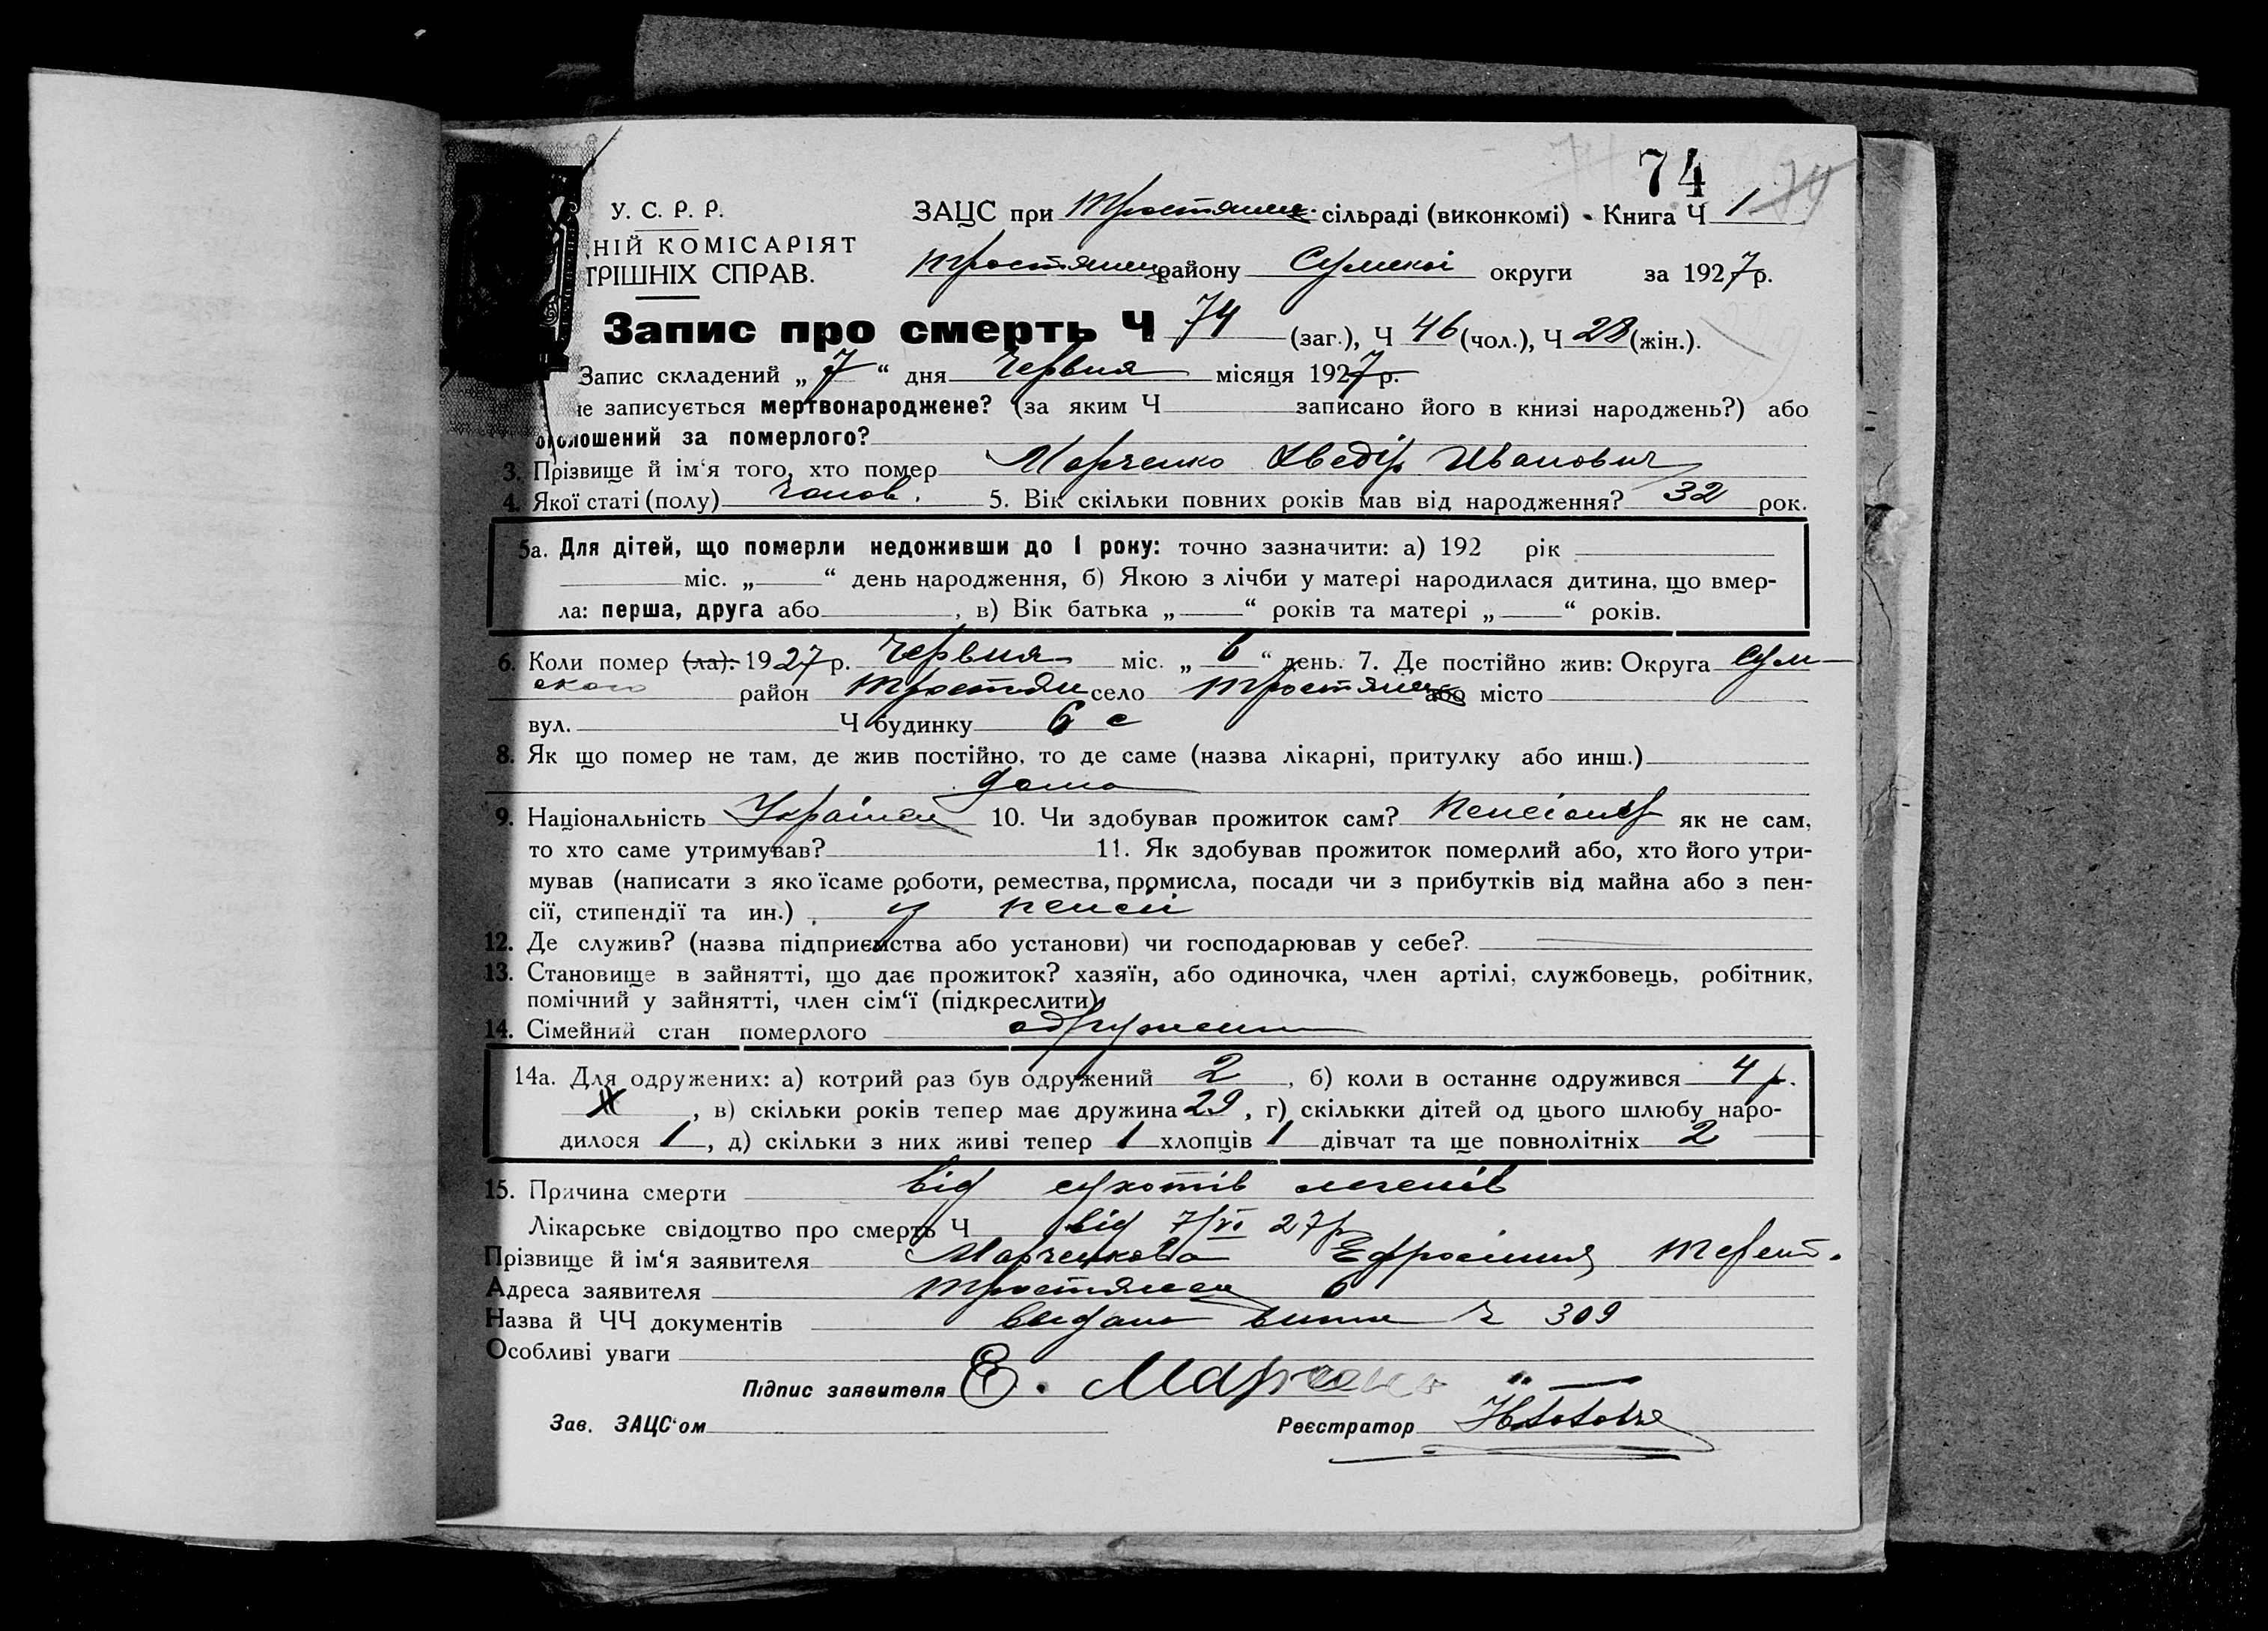 74 74
У. С. Р. Р. ЗАЦС при Тростянец. сільраді (виконкомі) Книга Ч 1
НІЙ КОМІСАРІЯТ
ТРІШНІХ СПРАВ. Тростянец району Сумскої округи за 1927 р.
Запис про смерть Ч 74 (заг.), Ч 46 (чол.), Ч 28 (жін.).
Запис складений „ 7 “ дня Червня місяця 1927 р.
не записується мертвонароджене? (за яким Ч записано його в книзі народжень?) або
оголошений за померлого?
3. Прізвище й ім‘я того, хто помер Марченко Хведір Иванович
4. Якої статі (полу) чолов. 5. Вік скільки повних років мав від народження? 32 рок.
5а. Для дітей, що померли недоживши до 1 року: точно зазначити: а) 192 рік
міс. „ “ день народження, б) Якою з лічби у матері народилася дитина, що вмер-
ла: перша, друга або , в) Вік батька „ “ років та матері „ “ років.
6. Коли помер (ла): 1927 р. Червня міс. „ 6 “ день. 7. Де постійно жив: Округа Сум-
ского район Тростян село Тростянец або місто
вул. Ч будинку 6 с
8. Як що помер не там, де жив постійно, то де саме (назва лікарні, притулку або инш.)
дома
9. Національність Українец 10. Чи здобував прожиток сам? Пенсіонер як не сам,
то хто саме утримував? 11. Як здобував прожиток померлий або, хто його утри-
мував (написати з якоїсаме роботи, ремества, промисла, посади чи з прибутків від майна або з пен-
сії, стипендії та ин.) із пенсії
12. Де служив? (назва підприємства або установи) чи господарював у себе?
13. Становище в зайнятті, що дає прожиток? хазяїн, або одиночка, член артілі, службовець, робітник,
помічний у зайнятті, член сім‘ї (підкреслити)
14. Сімейний стан померлого одружен
14а. Для одружених: а) котрий раз був одружений 2 , б) коли в останнє одружився 4 р.
, в) скільки років тепер має дружина 29 , г) скількки дітей од цього шлюбу наро-
дилося 1 , д) скільки з них живі тепер 1 хлопців 1 дівчат та ще повнолітніх 2
15. Причина смерти від сухотів легенів
Лікарське свідоцтво про смерть Ч від 7/VI 27 р
Прізвище й ім‘я заявителя Марченкова Ефросиния Терент.
Адреса заявителя Тростянец 6
Назва й ЧЧ документів видано витяг Ч 309
Особливі уваги
Підпис заявителя Е. Марченко
Зав. ЗАЦС‘ом Реєстратор